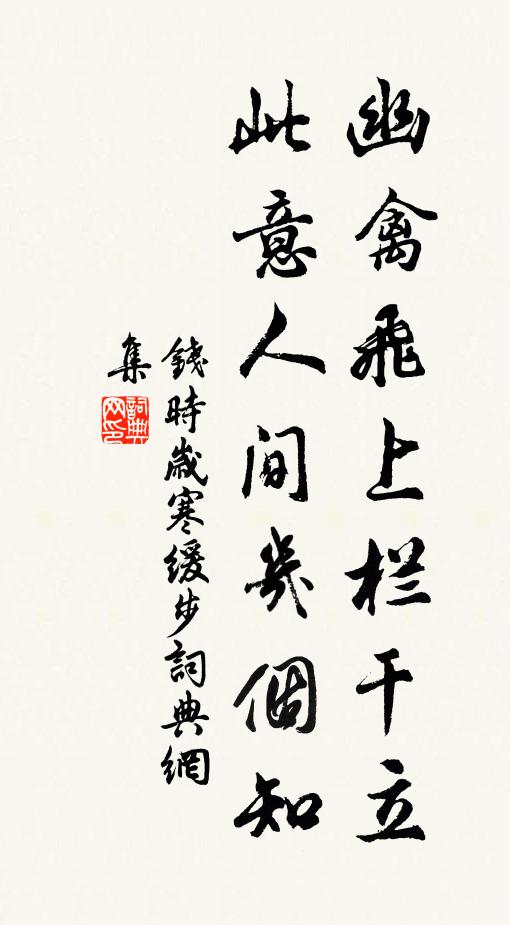 幽禽飛上栏干立
此意人间幾個知
錢時歲寒緩步詞典網
集
詞典
网印